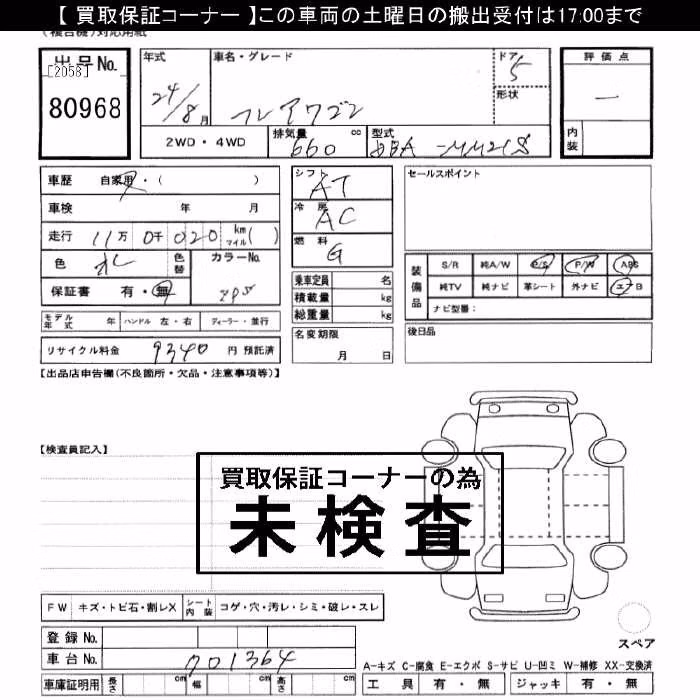 【 買取保証コーナー 】この車両の土曜日の搬出受付は17:00まで
(複合機)対応用紙
出品No.
[2058]
80968
年式
24/8月
車名・グレード
フレアワゴン
ドア
5
形状
評価点
―
内装
2WD・4WD
排気量 cc
660
型式
DBA-MM21S
車歴 自家用・( )
車検 年 月
走行 11万 0千 020 km マイル( )
色
色替
カラーNo.
ZPS
保証書 有・無
モデル年式 年 ハンドル 左・右 ディーラー・並行
リサイクル料金 9340 円 預託済
シフト
AT
冷房
AC
燃料
G
乗車定員 名
積載量 kg
総重量 kg
名変期限
月 日
セールスポイント
装備品
S/R 純A/W P/S P/W ABS
純TV 純ナビ 革シート 外ナビ エアB
ナビ型番：
後日品
【出品店申告欄(不良箇所・欠品・注意事項等)】
【検査員記入】
買取保証コーナーの為
未検査
FW キズ・トビ石・割レX シート内装 コゲ・穴・汚レ・シミ・破レ・スレ
登録 No.
車台 No. 701364
車庫証明用 長さ cm 幅 cm 高さ cm
スペア
A-キズ C-腐食 E-エクボ S-サビ U-凹ミ W-補修 XX-交換済
工具 有・無 ジャッキ 有・無